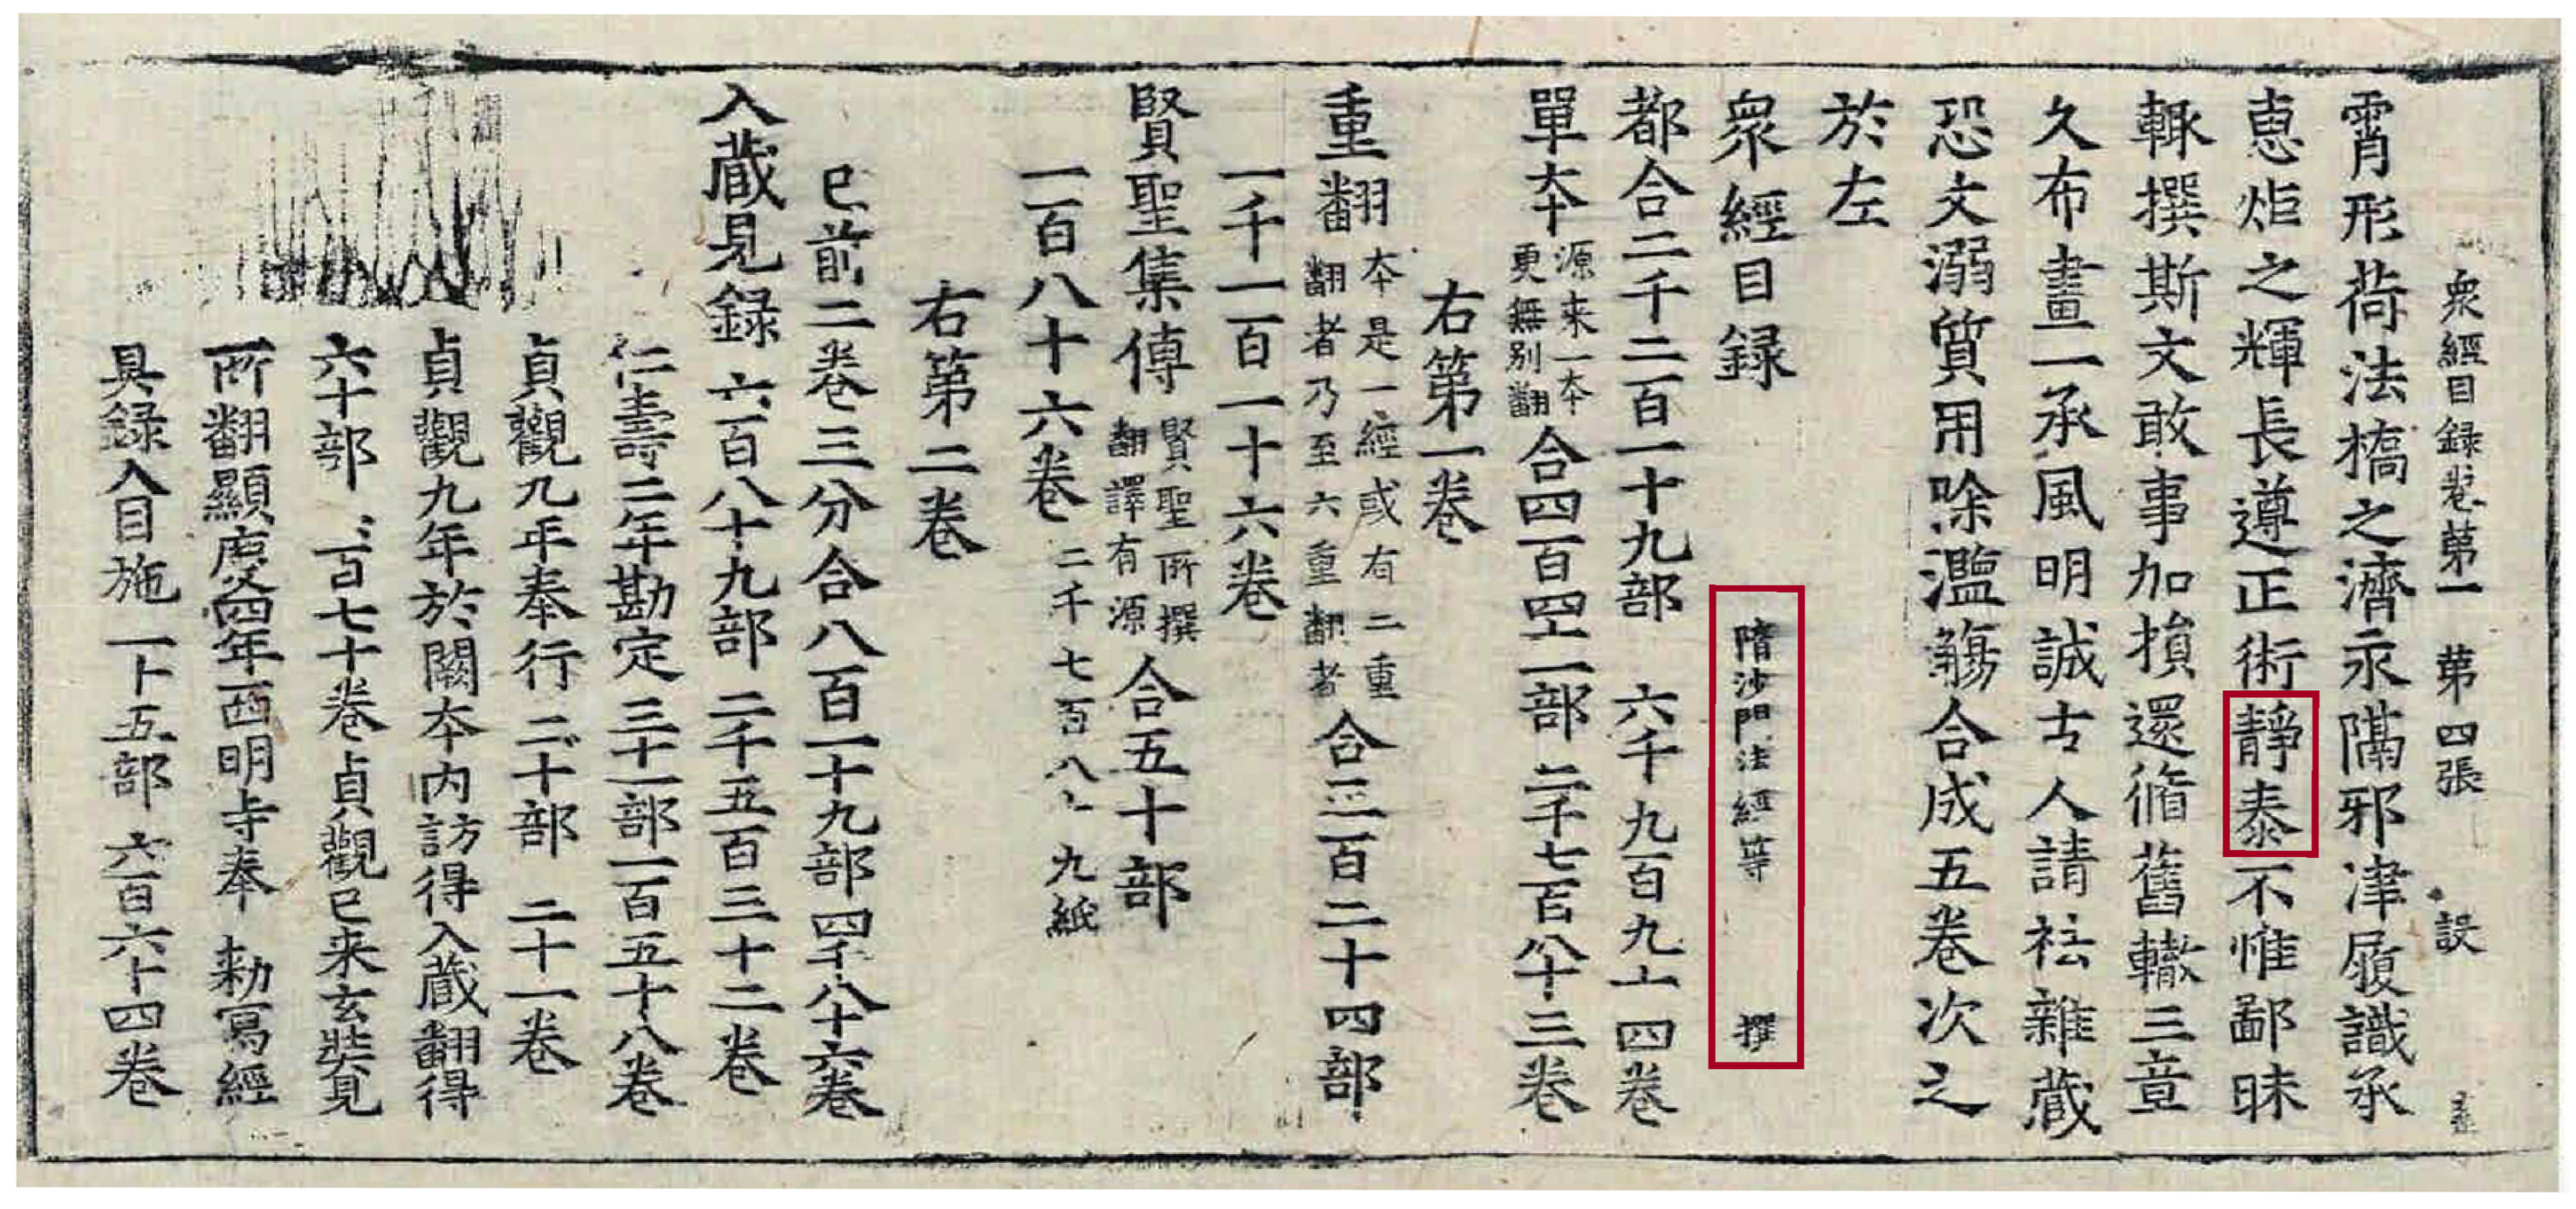 衆經目録卷第一 第四張 設
霄形荷法橋之濟永隔邪津履識承
惠炬之輝長遵正術靜泰不惟鄙昧
輙撰斯文敢事加損還脩舊轍三章
久布畫一承風明誠古人請祛雜蔵
恐文溺質用除濫觴合成五卷次之
於左
衆經目録 隋沙門法經等 撰
都合二千二百一十九部 六千九百九十四卷
單夲 源来一夲
更無別翻 合四百四十一部 二千七百八十三卷
右第一卷
重翻 夲是一經或有二重
翻者乃至六重翻者 合三百二十四部
一千一百一十六卷
賢聖集傳 賢聖所撰
翻譯有源 合五十部
一百八十六卷 二千七百八十九紙
右第二卷
已前二卷三分合八百一十九部四千八十六卷
入蔵見録 六百八十九部 二千五百三十二卷
仁壽二年勘定三十一部一百五十八卷
貞觀九年奉行 二十部 二十一卷
貞觀九年於闕夲内訪得入蔵翻得
六十部 一百七十卷貞觀已来玄奘見
所翻顯慶四年西明寺奉 勅寫經
具録入目施 一十五部 六百六十四卷